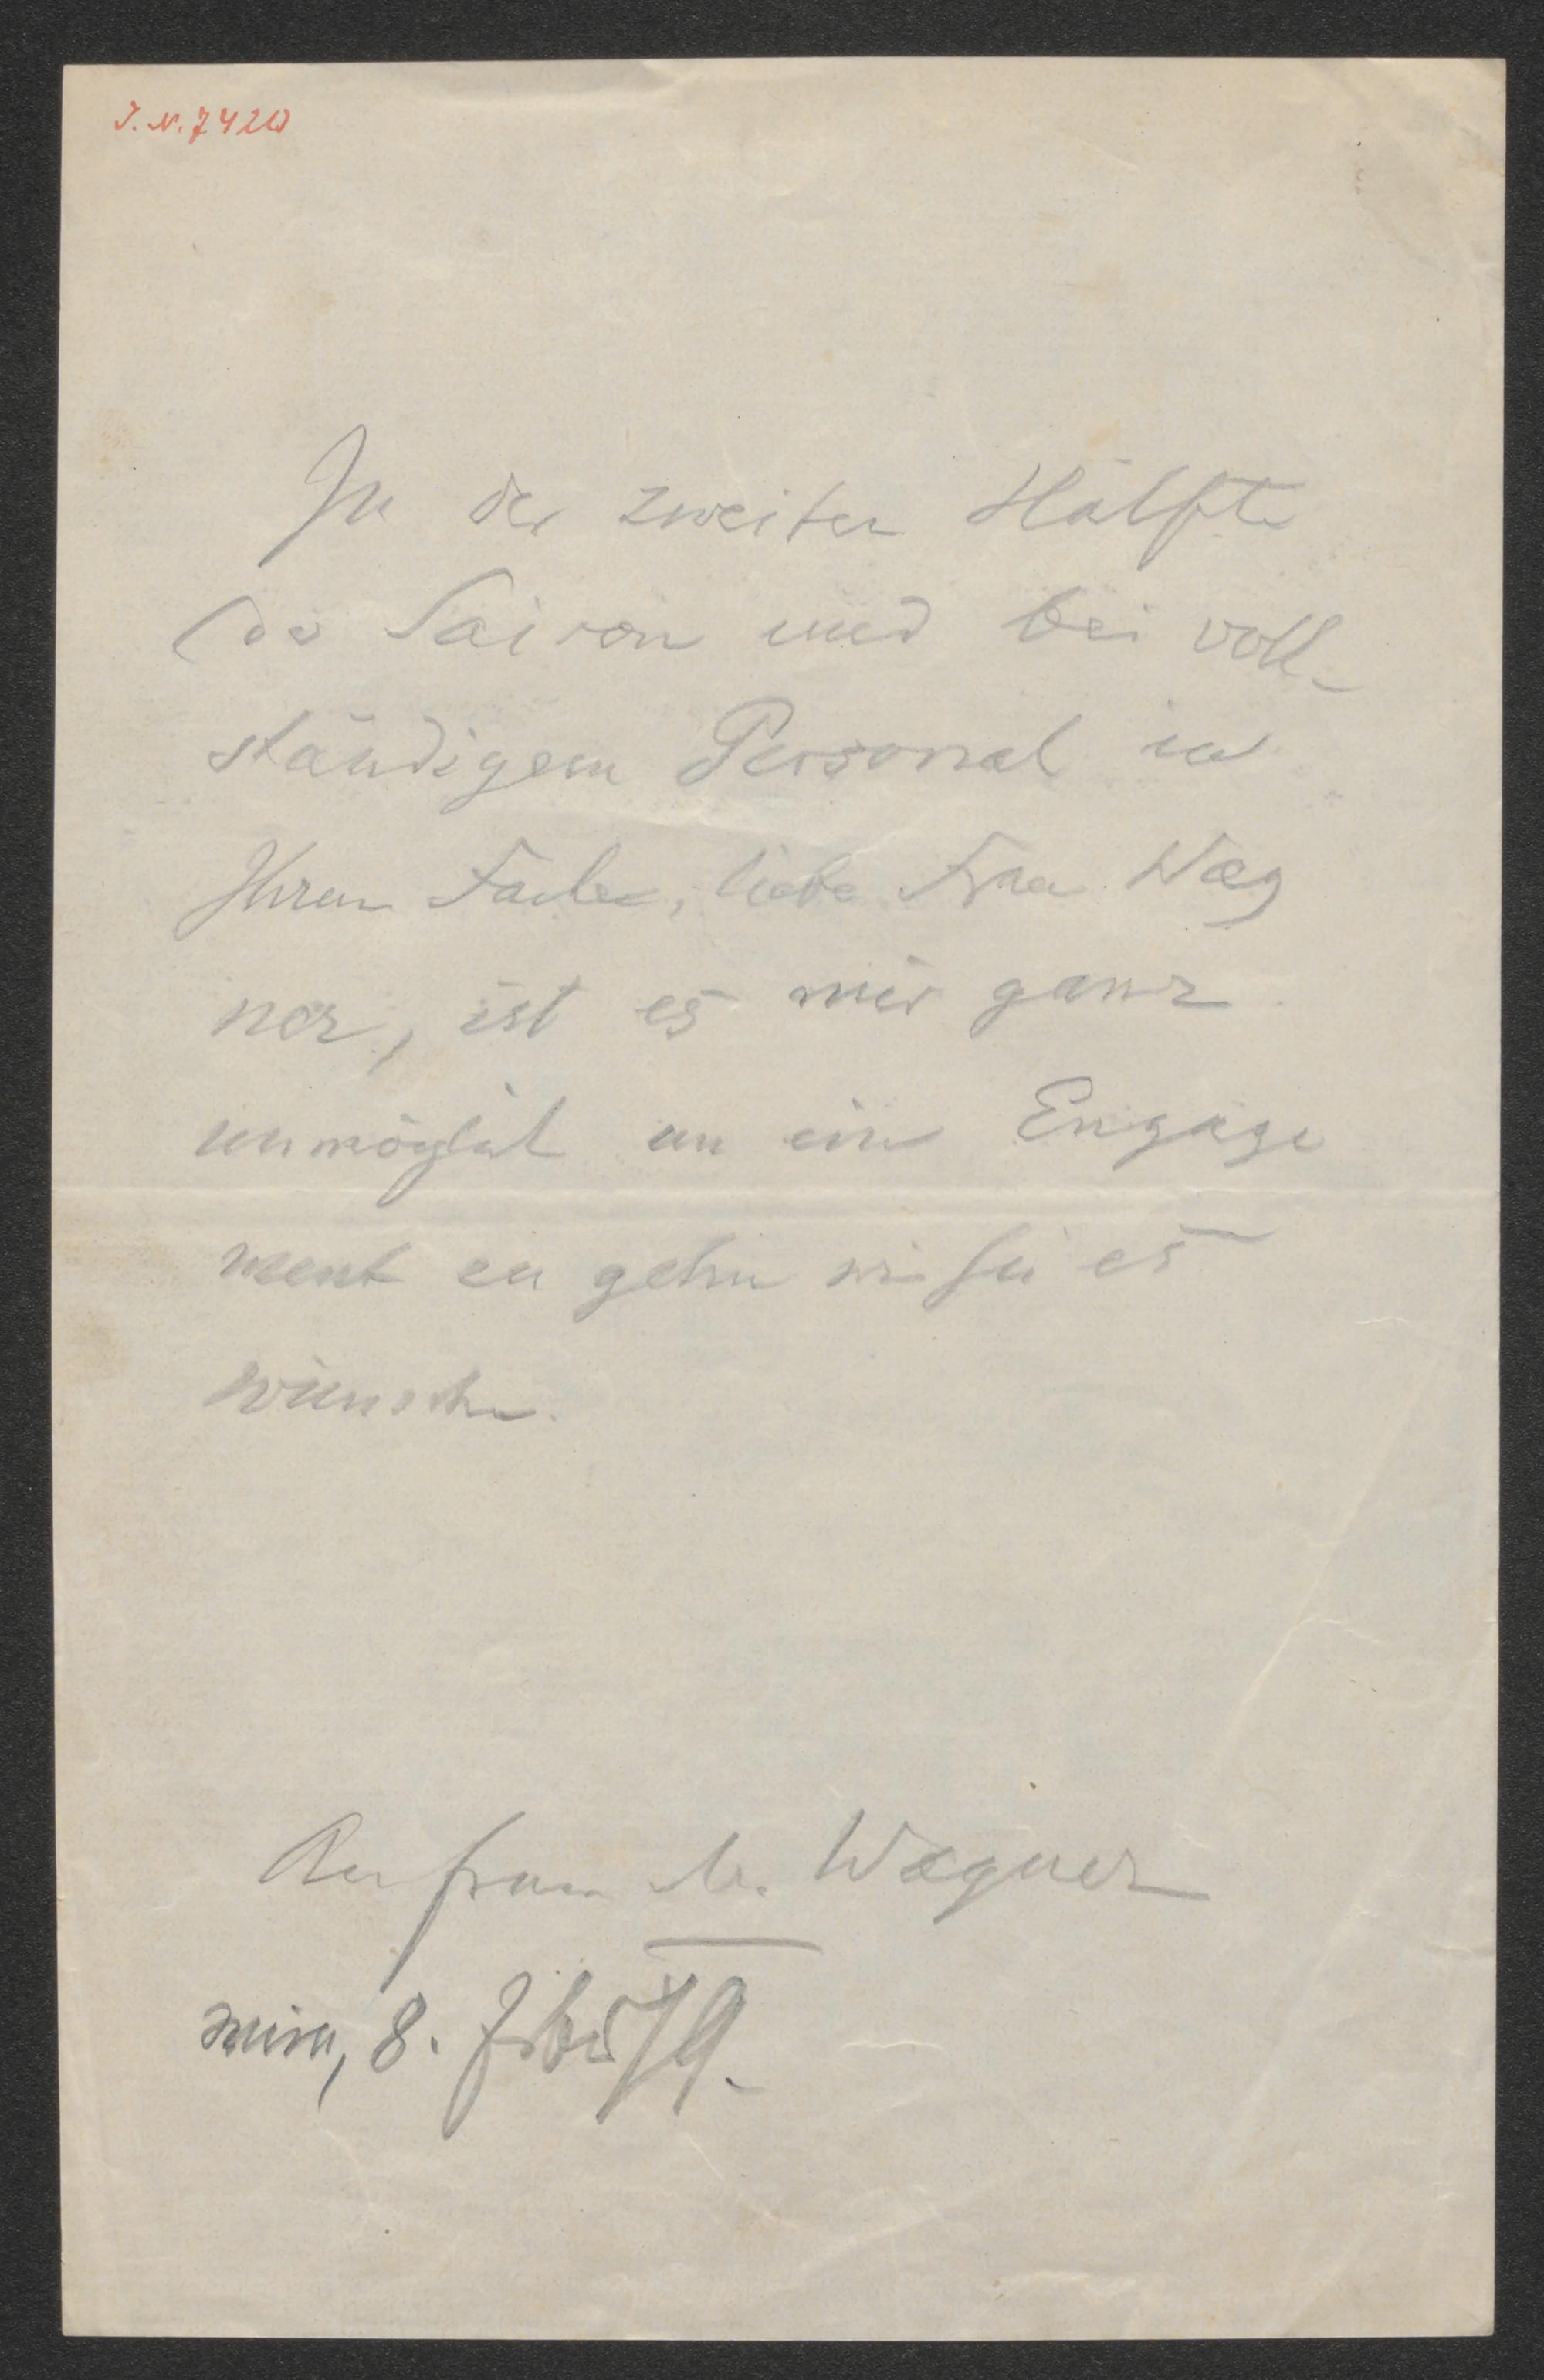 J. N. 7420
In der zweiten Hälfte
der Saison und bei voll-
ständigem Personal in
Ihrem Fache, liebe Frau Wag
ner, ist es mir ganz
unmöglich an ein Engage
ment zu gehn wie Sie es
wünschen.
An Frau M. Wagner
Wien, 8. Febr 79.